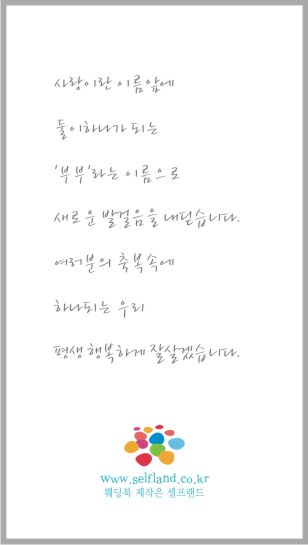 사랑이란 이름 앞에
둘이 하나가 되는
'부부'라는 이름으로
새로운 발걸음을 내딛습니다.
여러분의 축복속에
하나되는 우리
평생 행복하게 잘살겠습니다.
www.selfland.co.kr
웨딩북 제작은 셀프랜드